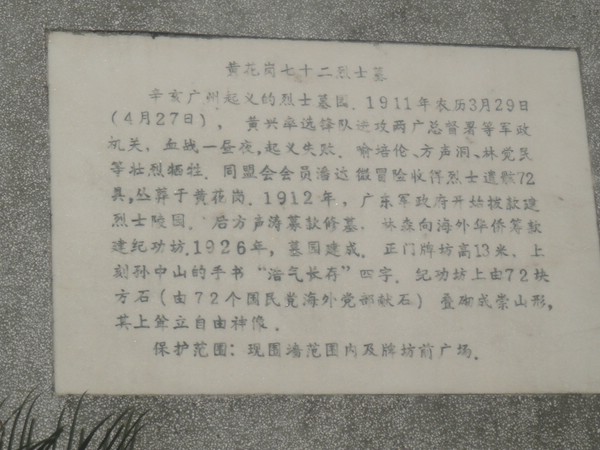 黄花岗七十二烈士墓
辛亥广州起义的烈士墓园. 1911年农历3月29日
(4月27日), 黄兴率选锋队进攻两广总督署等军政
机关, 血战一昼夜, 起义失败. 喻培伦、方声洞、林觉民
等壮烈牺牲. 同盟会会员潘达微冒险收得烈士遗骸72
具, 丛葬于黄花岗. 1912年, 广东军政府开始拨款建
烈士陵园. 后方声涛募款修墓, 林森向海外华侨筹款
建纪功坊. 1926年, 墓园建成. 正门牌坊高13米, 上
刻孙中山的手书“浩气长存”四字. 纪功坊上由72块
方石(由72个国民党海外党部献石) 叠砌成崇山形,
其上耸立自由神像.
保护范围: 现围墙范围内及牌坊前广场.